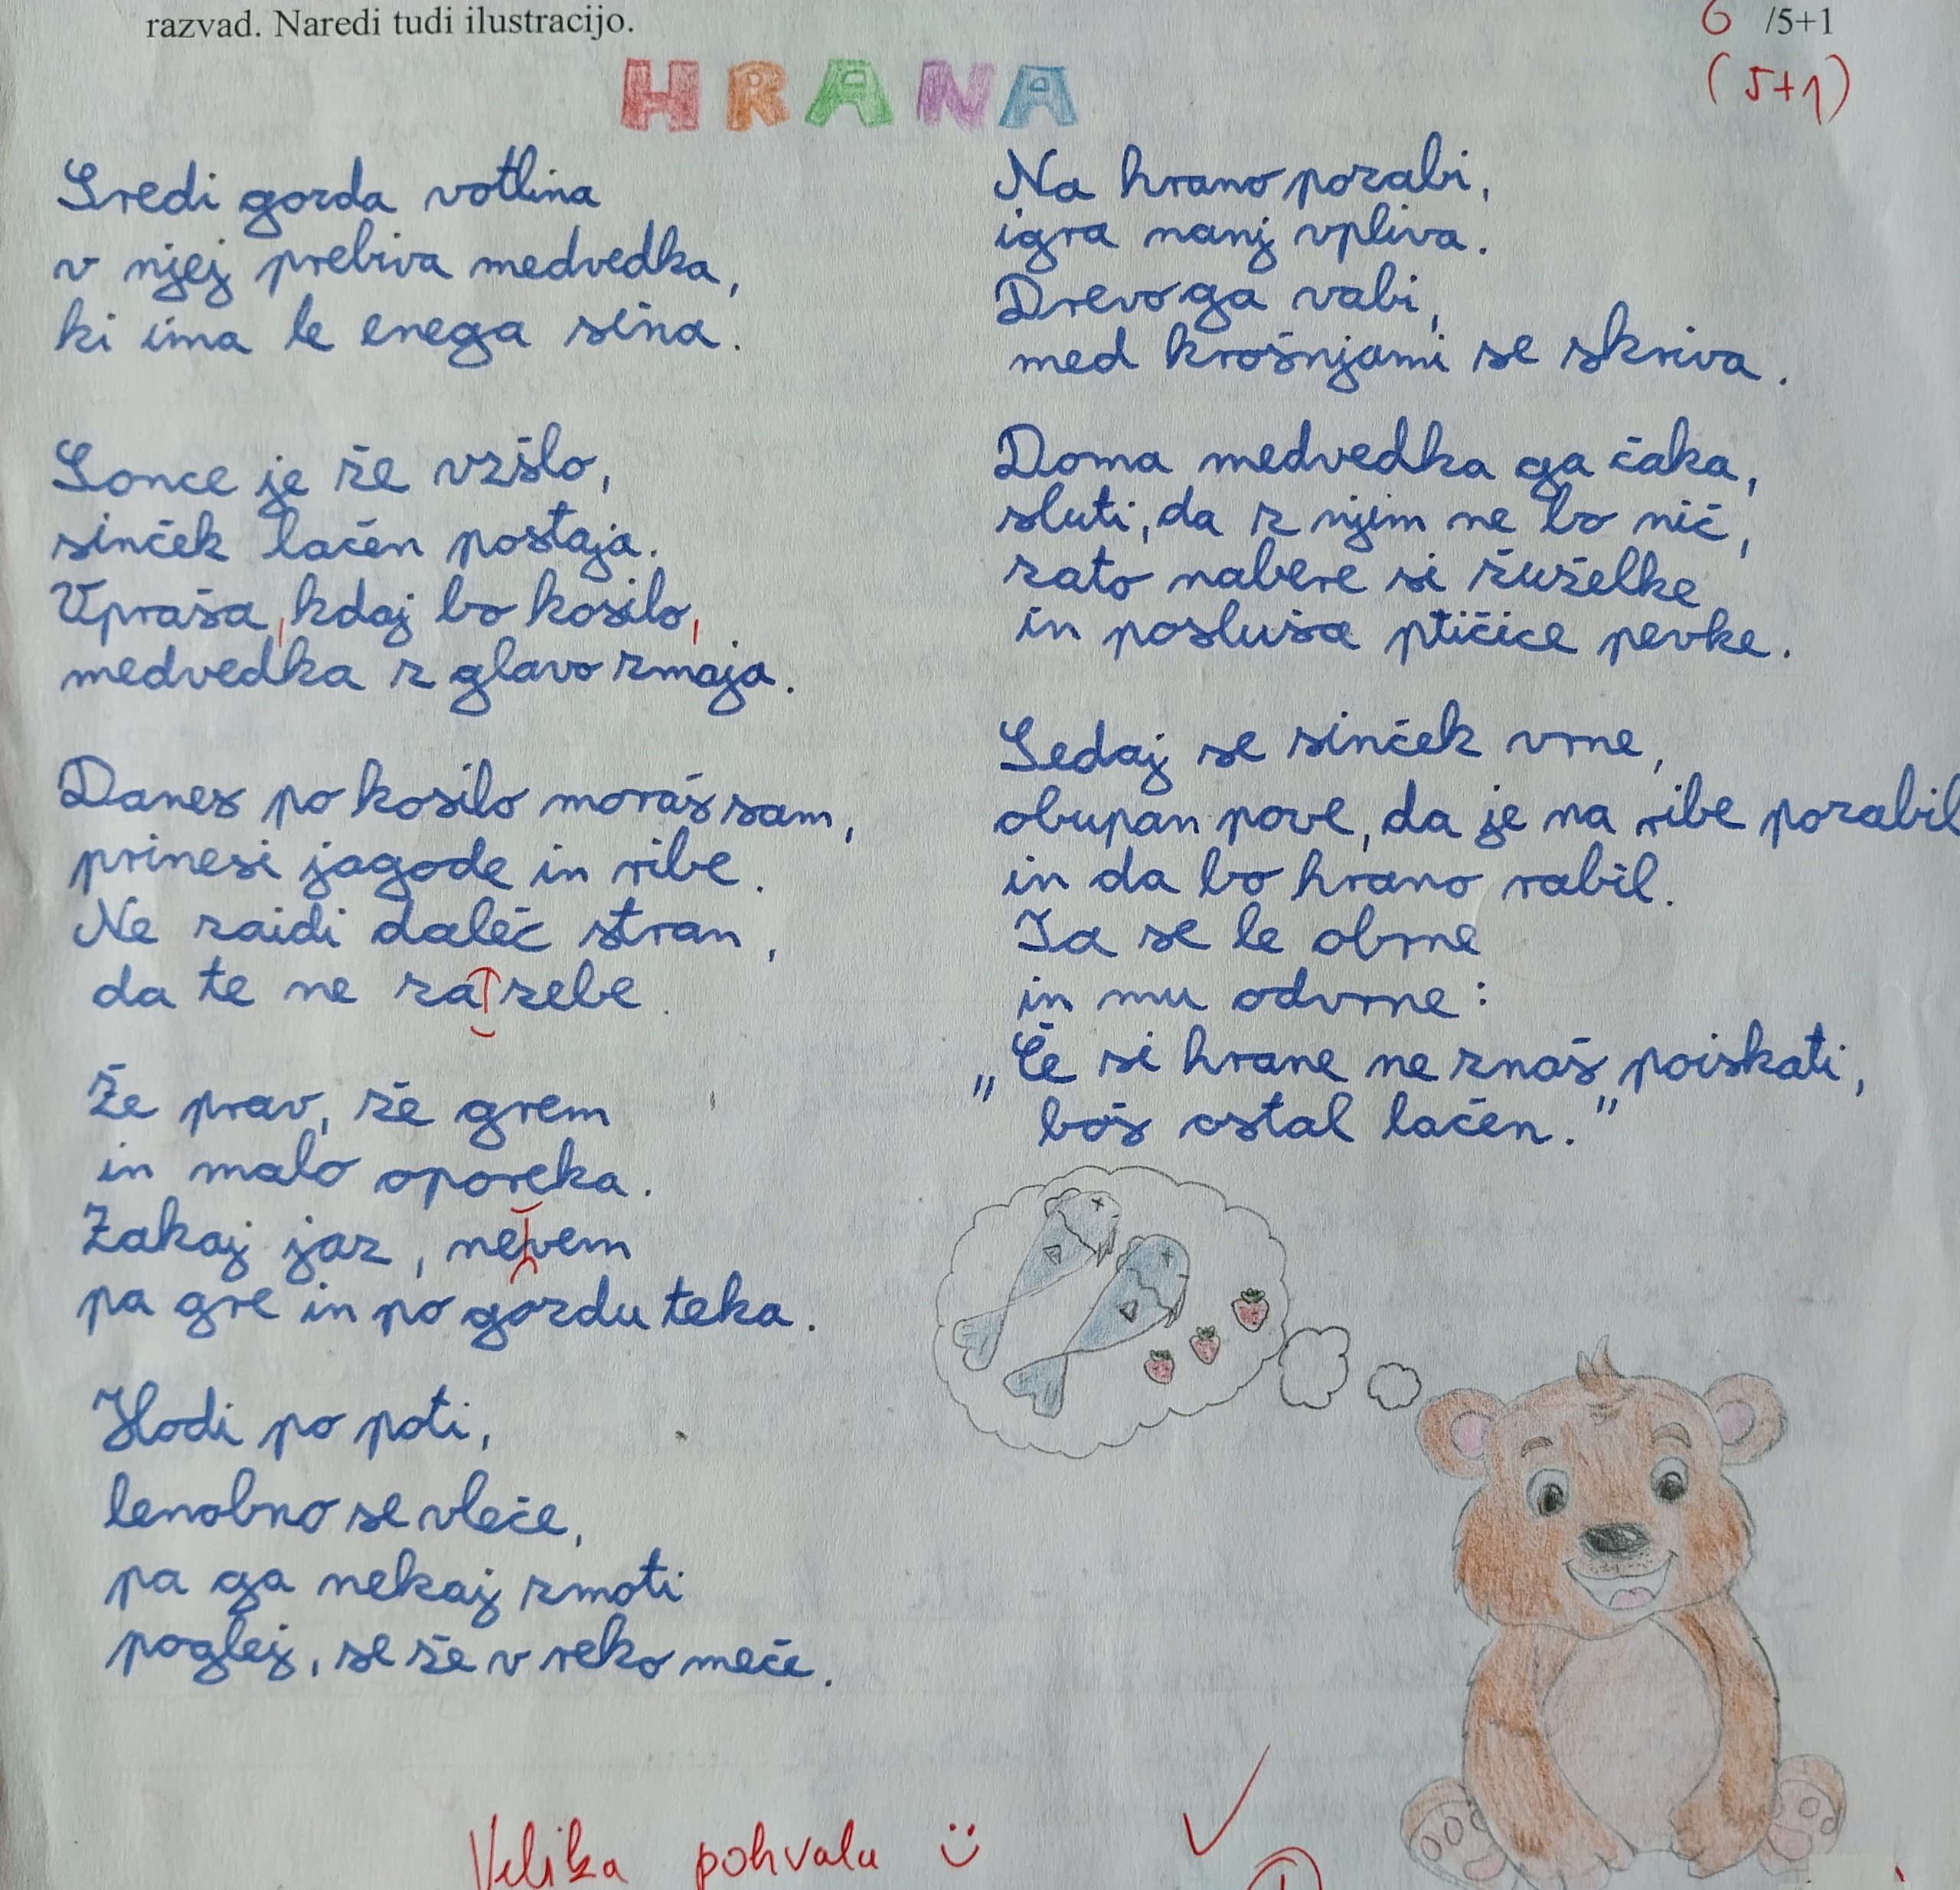 razvad. Naredi tudi ilustracijo.
6 /5+1
(5+1)
HRANA
Sredi gozda votlina
v njej prebiva medvedka,
ki ima le enega sina.
Sonce je že vzšlo,
sinček lačen postaja.
Vpraša, kdaj bo kosilo,
medvedka z glavo zmaja.
Danes po kosilo moraš sam,
prinesi jagode in ribe.
Ne zaidi daleč stran,
da te ne zazebe.
Že prav, že grem
in malo oporeka.
Zakaj jaz, nevem
pa gre in po gozdu teka.
Hodi po poti,
lenobno se vleče,
pa ga nekaj zmoti
poglej, se že v reko meče.
Na hrano pozabi,
igra nanj vpliva.
Drevo ga vabi,
med krošnjami se skriva.
Doma medvedka ga čaka,
sluti, da z njim ne bo nič,
zato nabere si žuželke
in posluša ptičice pevke.
Sedaj se sinček vrne,
obupan pove, da je na ribe pozabil
in da bo hrano rabil.
Ta se le obrne
in mu odvrne:
„Če si hrane ne znaš poiskati,
boš ostal lačen."
Velika pohvala :)